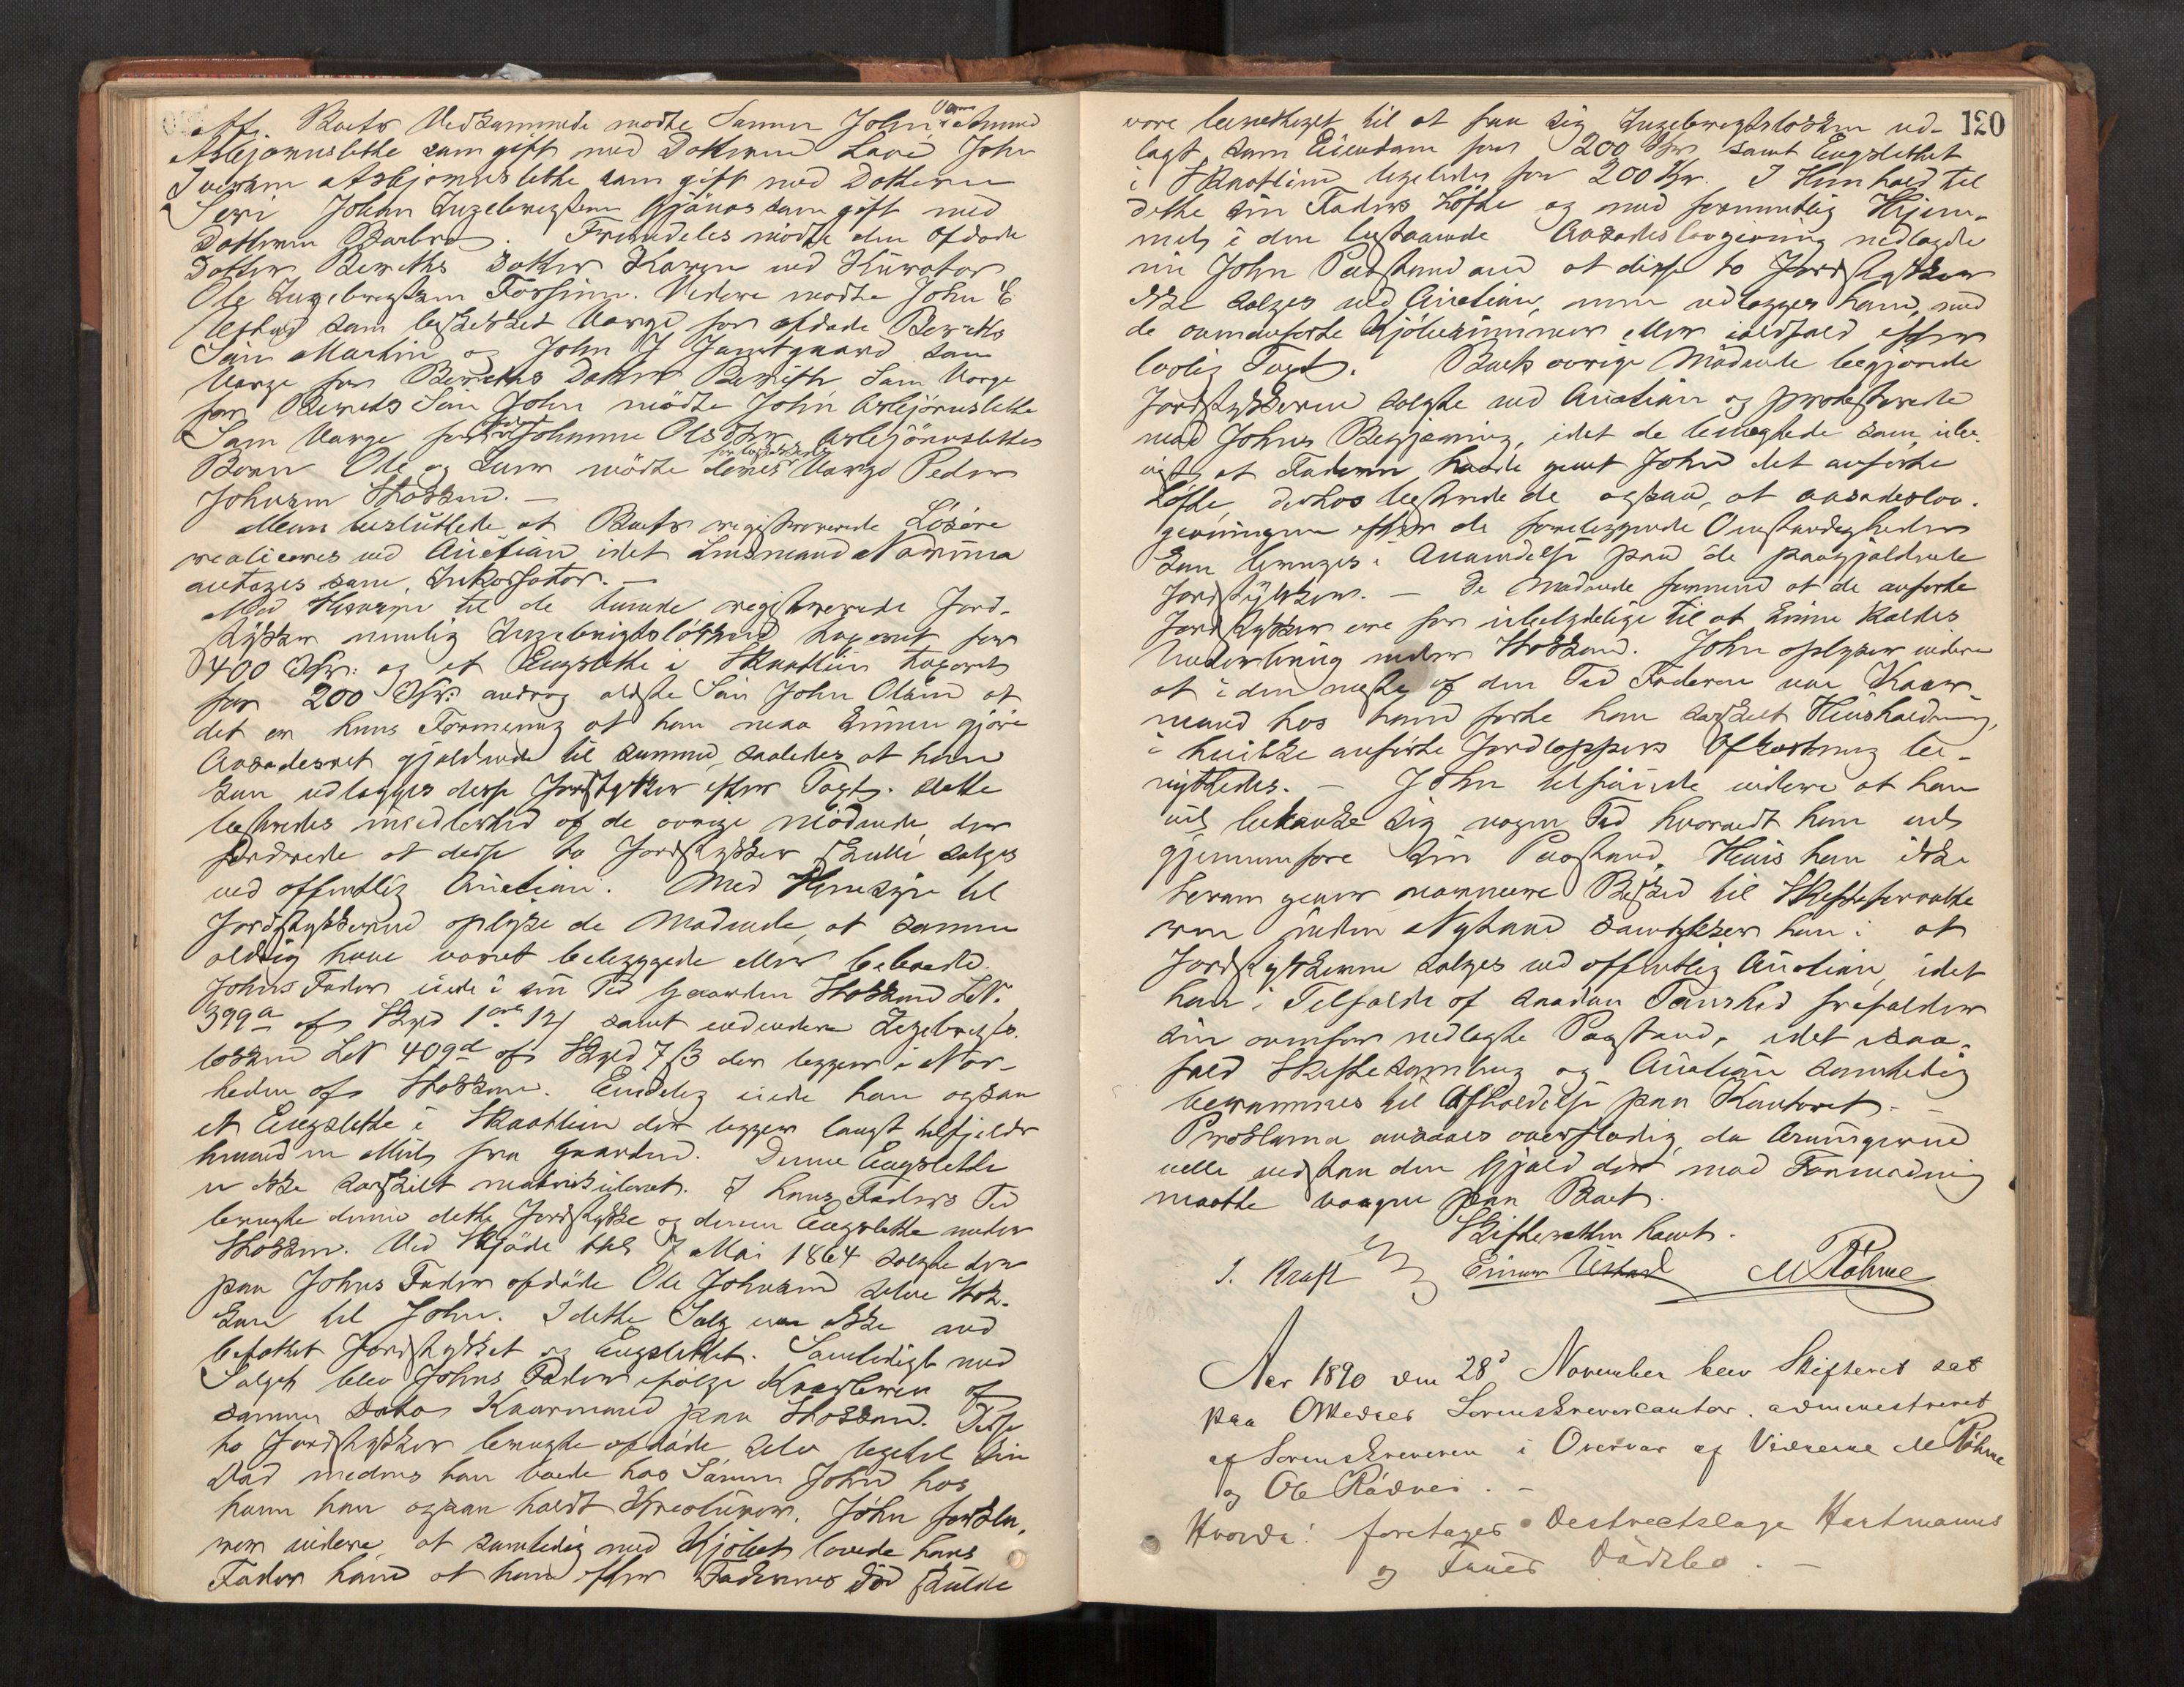 Boets Vedkommende mødte Sønnen John, Arnund
Asbjørnslette som gift med Datteren John
Iversen Asbjørnslette som gift med Datteren
Seri Johan Ingebrigtsen Gjønas som gift med
Datteren Barbro. Fremdeles mødte den afdøde
Datter Bereths Datter Karen med Kurator
Ole Ingebrigtsen Forsinn. Videre mødte John E
Ustad som beskikket Værge for afdøde Bereths
Søn Martin og John J Jamtgaard som
Værge for Bereths Datter Bereth. Som Værge
for Bereths Søn John mødte John Asbjørnslette
Som Værge for Johanne Olsdtr Asbjørnslettes
Børn Ole og mødte deres Værge Peder
Johnsen Stokken. —
Man besluttede at Boets registrerede Løsøre
realiseres ved Auction idet Lensmand
antages som Inkassator. —
Med Hensyn til de tvende registrerede Jord-
stykker nemlig Ingebrigtsløkken taxeret for
400 Kr: og et Engslette i Skaotlien taxeret
for 200 Kr: androg ældste Søn John Olsen at
det er hans Formening at han maa kunne gjøre
Aasædesret gjældende til samme, saaledes at han
kan udlægges disse Jordstykker efter Taxt. Dette
bestredes imidlertid af de øvrige Mødende, der
fordrede at disse to Jordstykker skulle sælges
ved offentlig Auction. Med Hensyn til
Jordstykkerne oplyste de Mødende, at samme
aldrig have været bebyggede eller beboede.
Johns Fader eiede i sin Tid Gaarden Stokken LN.
399a af Skyld 1 ort 12 samt endvidere Ingebrigts-
løkken LN 409d af Skyld 7 ß der ligger i Nær-
heden af Stokken. Endelig eiede han ogsaa
et Engslette i Skaotlien der ligger langt tilfjelds
henved en Miil fra Gaarden. Denne Engslette
er ikke særskilt matrikuleret. I hans Faders Tid
brugte denne dette Jordstykke og denne Engslette under
Stokken. Ved Skjøde tgl 7 Mai 1864 solgte den
paa Johns Fader afdøde Ole Johnsen selve Stok-
ken til John. I dette Salg var ikke med
befattet Jordstykket og Engslettet. Samtidigt med
Salget blev Johns Fader ifølge Kaarbrev af
samme Dato Kaarmand paa Stokken. Disse
to Jordstykker brugte afdøde selv ligetil sin
Død medens han boede hos Sønnen John hos
hvem han ogsaa holdt Kreaturer. John forkla-
rer videre, at samtidig med Kjøbet lovede hans
Fader ham at han efter Faderens Død skulde
120
være berettiget til at faa sig Ingebrigtsløkken ud-
lagt som Eiendom for 200 Kr samt Engslettet
i Skaotlien ligeledes for 200 Kr. I Henhold til
dette sin Faders Løfte og med formentlig Hjem-
mel i den bestaaende Aasædeslovgivning nedlagde
nu John Paastand om at disse to Jordstykker
ikke sælges ved Auction, men udlægges ham, med
de ovenanførte Kjøbesummer eller ialdfald efter
lovlig Taxt. Boets øvrige Mødende begjærede
Jordstykkerne solgte ved Auction og protesterede
mod Johns Begjæring, idet de benægtede som ube-
vist, at Faderen havde givet John det anførte
Løfte, derhos bestrede de ogsaa, at aasædeslov-
givningen efter de foreliggende Omstændigheder
kan bringes i Anvendelse paa de paagjældende
Jordstykker. — De Mødende formene at de anførte
Jordstykker ere for ubetydelige til at kunne kaldes
Underbrug under Stokken. John oplyser videre
at i den meste af den Tid Faderen var Kaar-
mand hos ham førte han særskilt Husholdning,
i hvilke anførte Jordlappers Afkastning be-
nyttedes. — John tilføiede videre at han
vil betænke sig nogen Tid hvorvidt han vil
gjennemføre sin Paastand. Hvis han ikke
herom giver nærmere Besked til Skifteforvalte
ren inden Nytaar samtykker han i at
Jordstykkerne sælges ved offentlig Auction, idet
han i Tilfælde af saadan Taushed frafalder
sin ovenfor nedlagte Paastand, idet isaa-
fald Skiftesamling og Auction samtidig
berammes til Afholdelse paa Kontoret. —
Proklama ansaaes overflødig da Arvingerne
ville vedstaa den Gjæld der mod Formodning
maatte paa Boet.
Skifteretten hævet.
I. Kraft Einar Ustad M Røhme
Aar 1890 den 28d November blev Skifteret sat
paa Orkedals Sorenskrivercontor administreret
af Sorenskriveren i Overvær af Vidnerne M Røhme
og Ole Rødvei. —
Hvorda: foretages Destrectslæge Hartmanns
og Frues Dødsbo. —